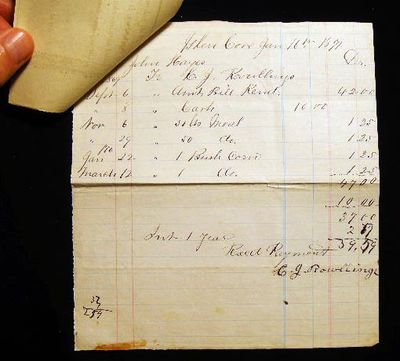 John Cove Jan 16th 1871
John Hayes Dr.
To C. J. Rawlings
Sept 6 " Amt Bill Rend. 42.00
" 8 " Cash 10.00
Nov 6 " Meal 1.25
" 29 " 20 do. 1.25
Jan 22 " 1 Bush Corn 1.25
March 12 " 1 do. 1.25
47.00
10.00
37.00
2.59
39.59
Int 1 year
Recd Payment
C. J. Rawlings
37
2.59